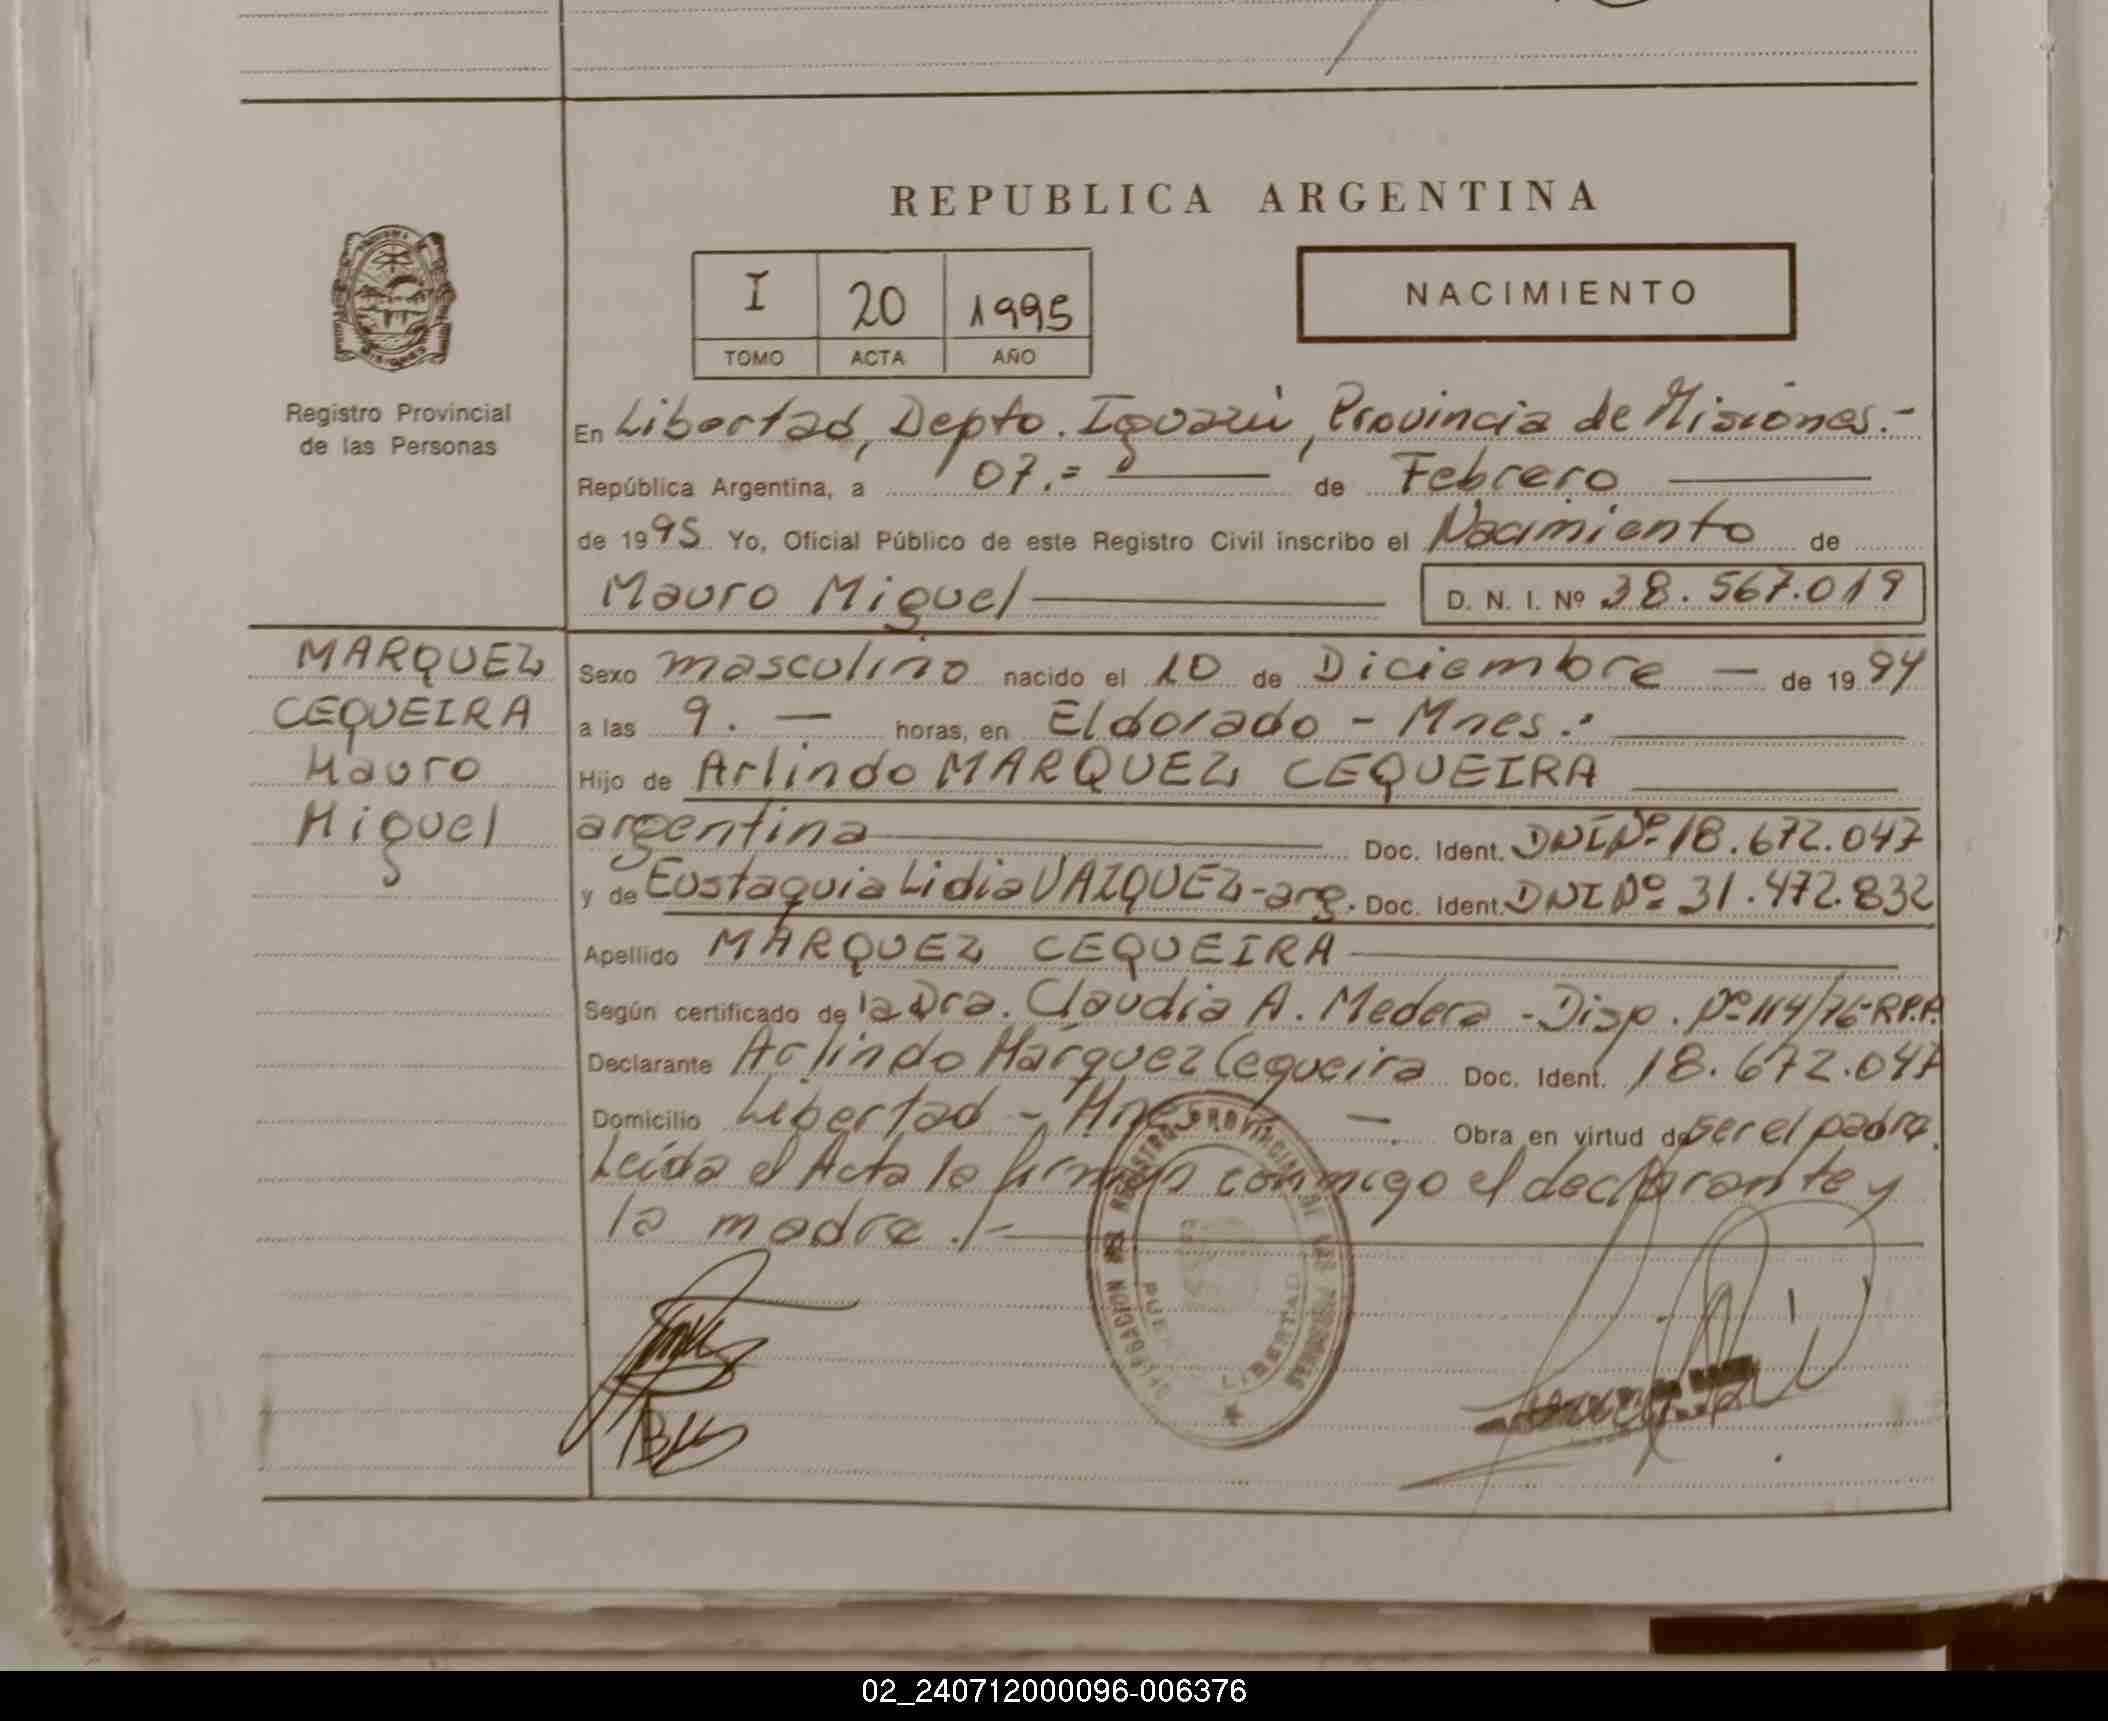 REPUBLICA ARGENTINA
I 20 1995
TOMO ACTA AÑO
NACIMIENTO
Registro Provincial
de las Personas
En Libertad, Depto. Iguazú, Provincia de Misiones.-
República Argentina, a 07.= de Febrero
de 1995 Yo, Oficial Público de este Registro Civil inscribo el Nacimiento de
Mauro Miguel D. N. I. Nº 38.567.019
MARQUEZ
CEQUEIRA
Mauro
Miguel
Sexo masculino nacido el 10 de Diciembre - de 1994
a las 9. - horas, en Eldorado - Mnes.
Hijo de Arlindo MARQUEZ CEQUEIRA
argentina Doc. Ident. DNI Nº 18.672.047
y de Eustaquia Lidia VAZQUEZ-arg. Doc. Ident. DNI Nº 31.472.832
Apellido MARQUEZ CEQUEIRA
Según certificado de la Dra. Claudia A. Medera - Disp. Nº 114/76-R.P.P.
Declarante Arlindo Márquez Cequeira Doc. Ident. 18.672.047
Domicilio Libertad - Mnes - Obra en virtud de ser el padre.
Leída el Acta la firman conmigo el declarante y
la madre./-
DELEGACION DEL REGISTRO PROVINCIAL DE LAS PERSONAS
LIBERTAD
02_240712000096-006376